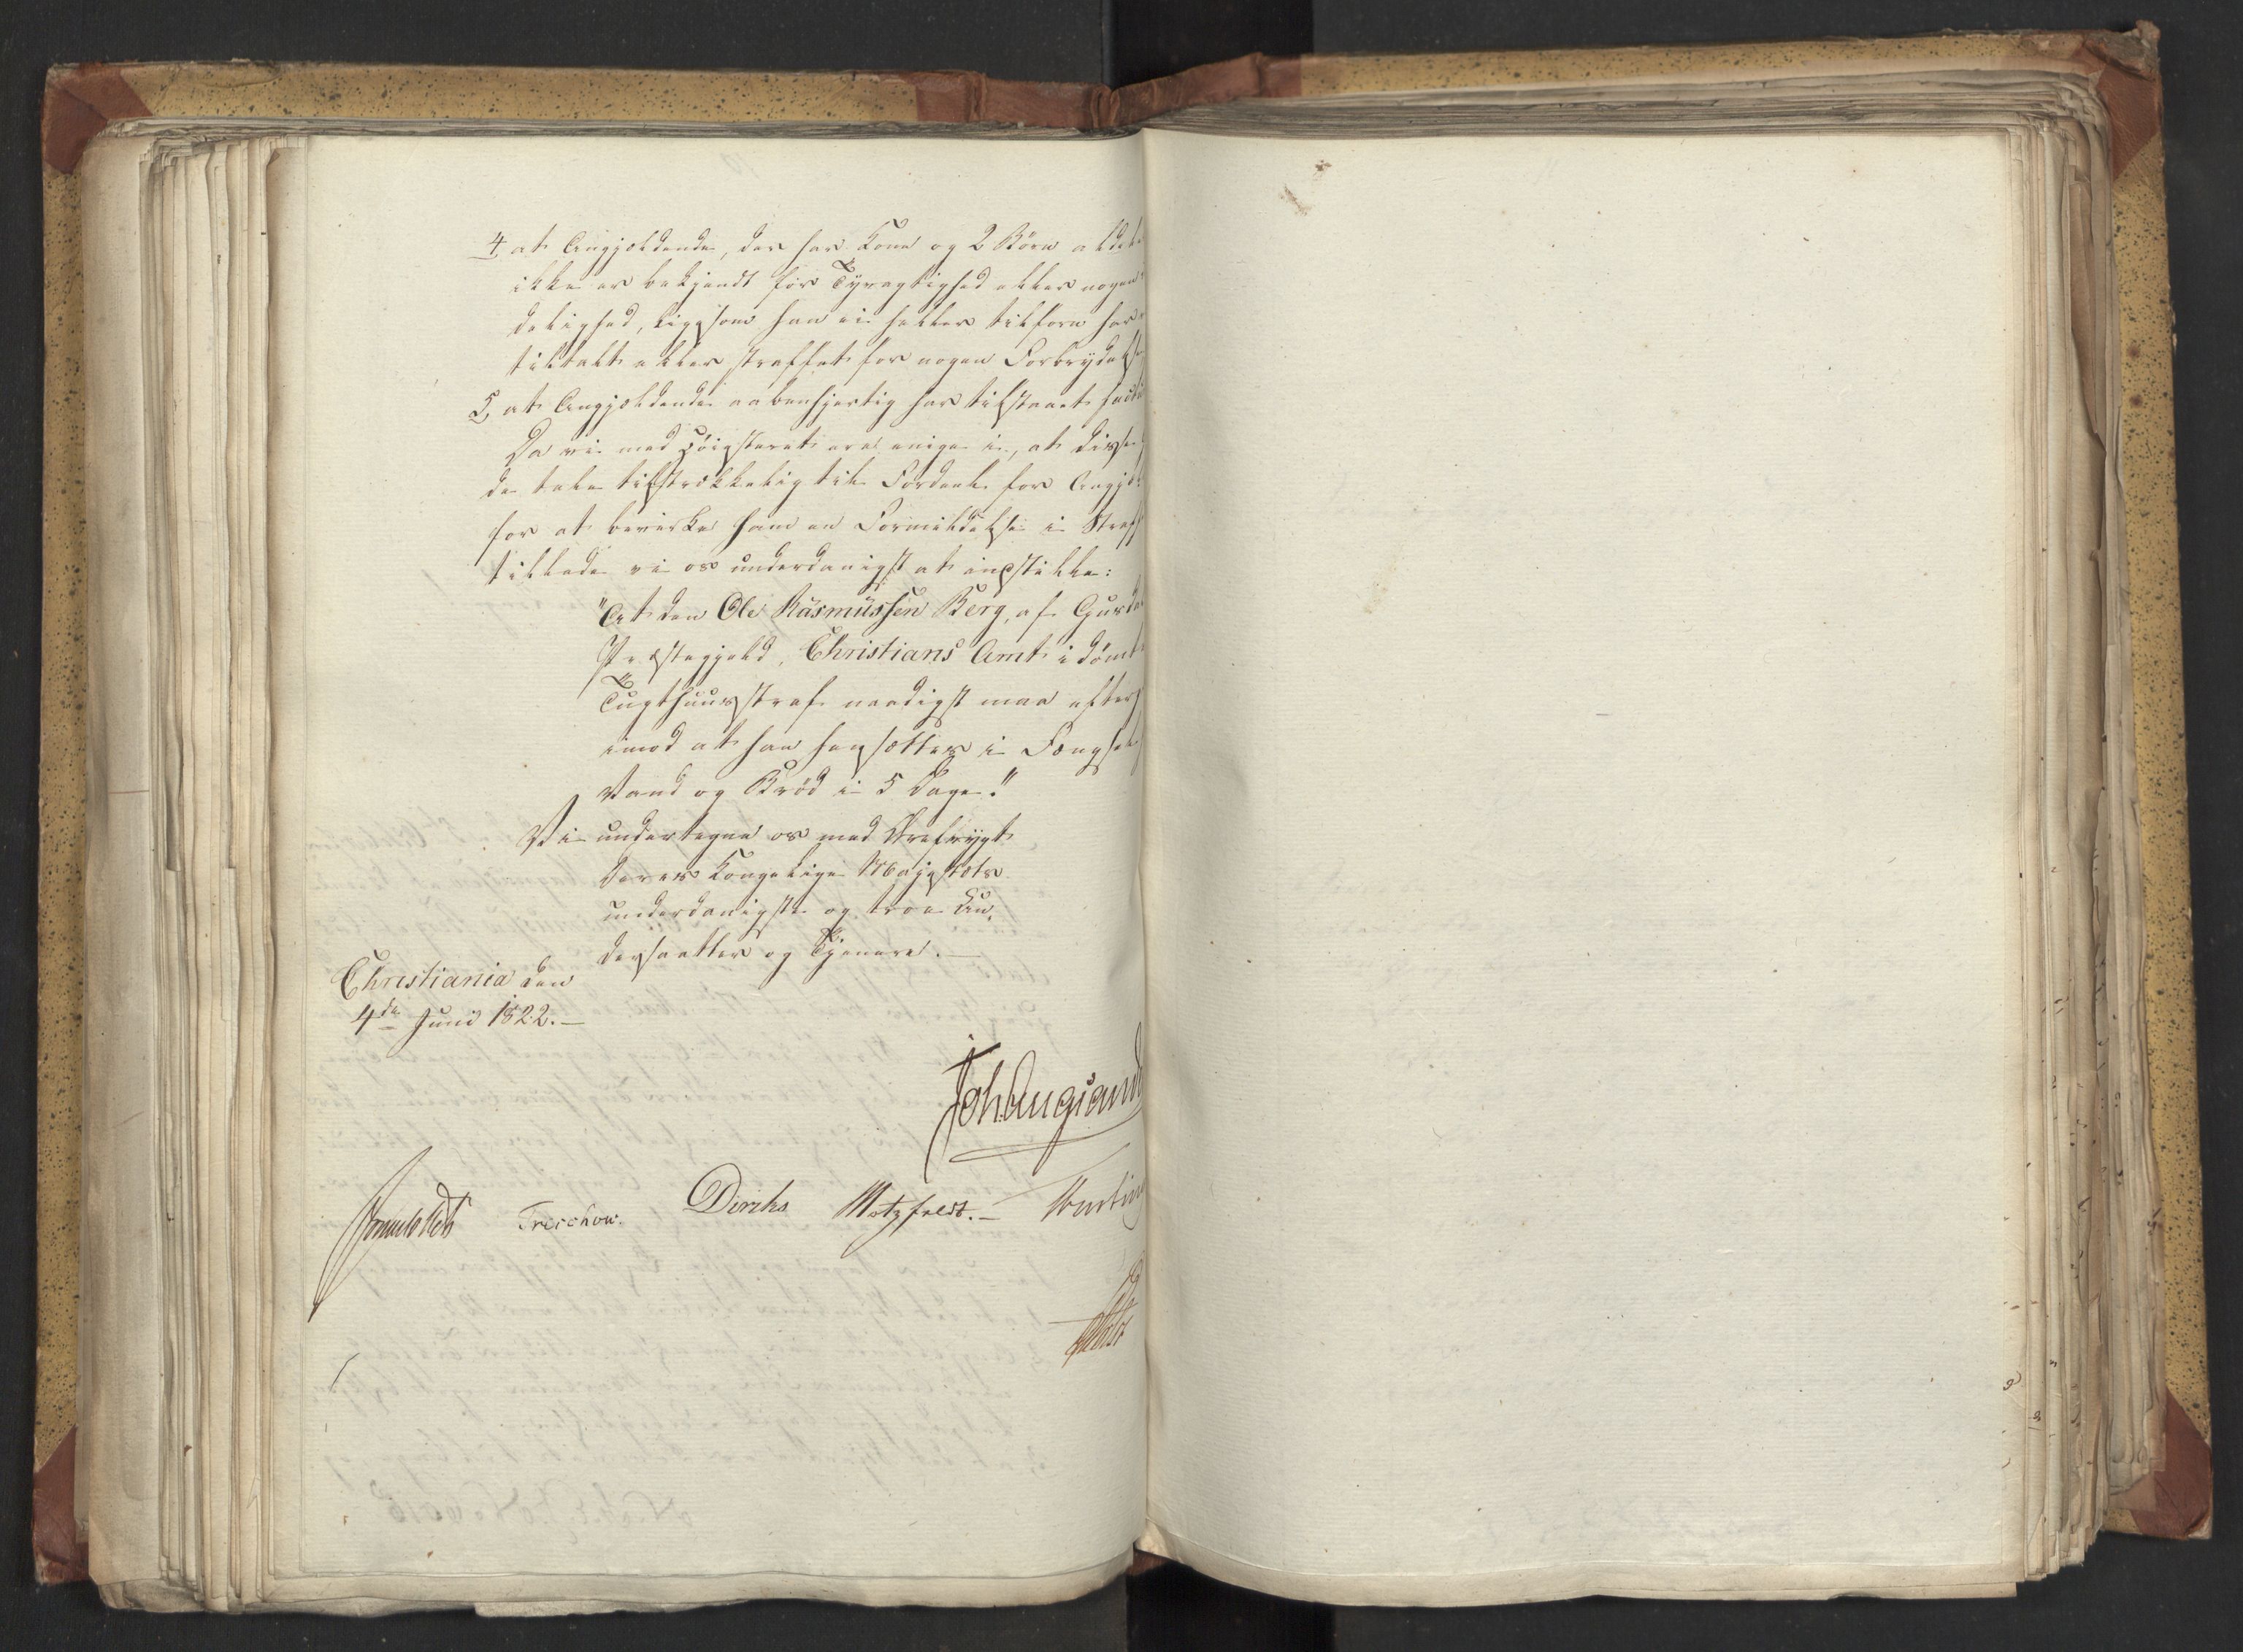 4, at Angjældende, der har Kone og 2 Børn aldel
ikke er bekjendt for Tyvagtighed eller nogen
delighed, ligesom han ei heller tilforn har
tiltalt eller straffet for nogen Forbrydelse
5, at Angjældende aabenhjertig har tilstaaet facti
Da vi med Höiesteret ere enige i, at disse
de tale tilstrækkelig til Fordeel for Angjæl
for at bevirke ham en Formildelse i Straff
tillade vi os underdanigst at indstille:
"At den Ole Rasmussen Berg, af Gusda
Præstegjeld, Christians Amt idømt
Tugthuusstraf naadigst maa efter
imod at han hensættes i Fængsel
Vand og Brød i 5 Dage."
Vi undertegne os med Ærefrygt
Deres Kongelige Majestæts
underdanigste og troe Un-
dersaatter og Tjenere.—
Christiania den
4de Juni 1822.—
Joh. Aug: Sand
Sommerhielm Treschow. Diriks Motzfeldt.— Fasting
Holst